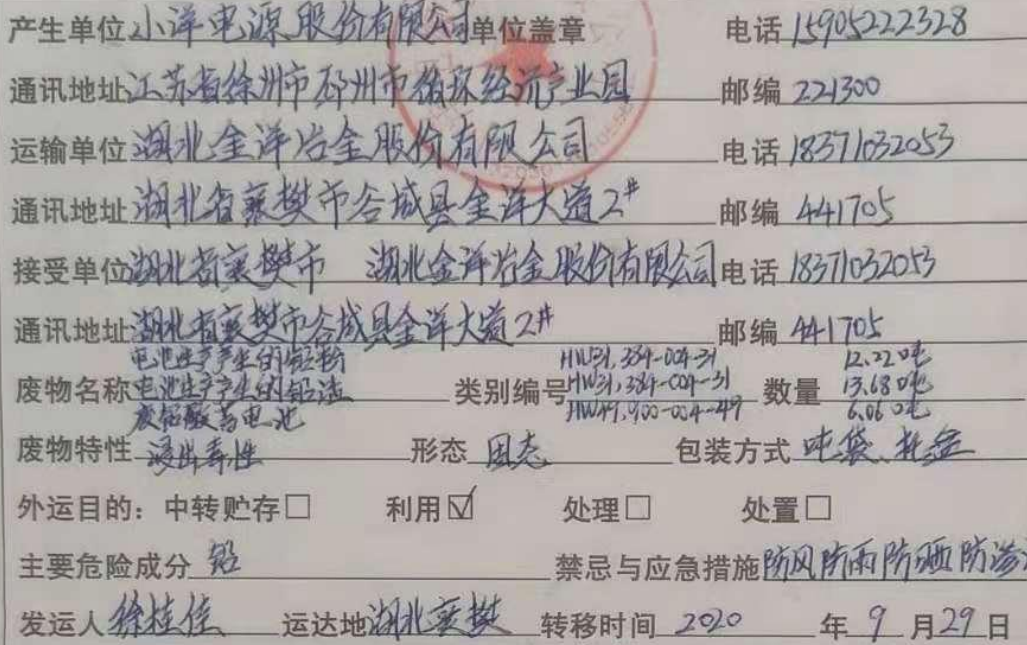 产生单位 小洋电源股份有限公司 单位盖章 电话 15905222328
通讯地址 江苏省徐州市邳州市循环经济产业园 邮编 221300
运输单位 湖北金洋冶金股份有限公司 电话 18371032053
通讯地址 湖北省襄樊市谷城县金洋大道2# 邮编 441705
接受单位 湖北省襄樊市 湖北金洋冶金股份有限公司 电话 18371032053
通讯地址 湖北省襄樊市谷城县金洋大道2# 邮编 441705
电池生产产生的铅粉 HW31.384-004-31 12.22吨
废物名称 电池生产产生的铅渣 类别编号 HW31.384-004-31 数量 13.68吨
废铅酸蓄电池 HW49.900-044-49 6.06吨
废物特性 浸出毒性 形态 固态 包装方式 吨袋、托盘
外运目的：中转贮存□ 利用☑ 处理□ 处置□
主要危险成分 铅 禁忌与应急措施 防风防雨防晒防渗
发运人 徐桂佳 运达地 湖北襄樊 转移时间 2020 年 9 月 29 日